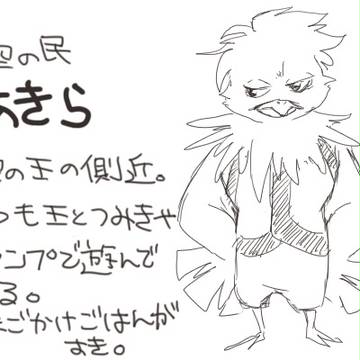 空の民
あきら
空の王の側近。
つも王とつみきや
ランプで遊んで
る。
まごかけごはんが
すき。